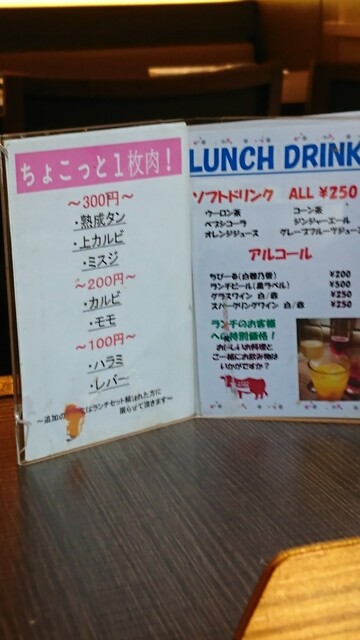 ちょこっと1枚肉！
～300円～
・熟成タン
・上カルビ
・ミスジ
～200円～
・カルビ
・モモ
～100円～
・ハラミ
・レバー
～追加の
はランチセット頼まれた方に
限らせて頂きます～
LUNCH DRINK
ソフトドリンク ALL ¥250
ウーロン茶 コーン茶
ペプシコーラ ジンジャーエール
オレンジジュース グレープフルーツジュース
アルコール
ちびーる(白穂乃香) ¥200
ランチビール(黒ラベル) ¥500
グラスワイン 白/赤 ¥250
スパークリングワイン 白/赤 ¥250
ランチのお客様
への特別価格！
おいしいお料理と
ご一緒にお飲み物は
いかがですか？